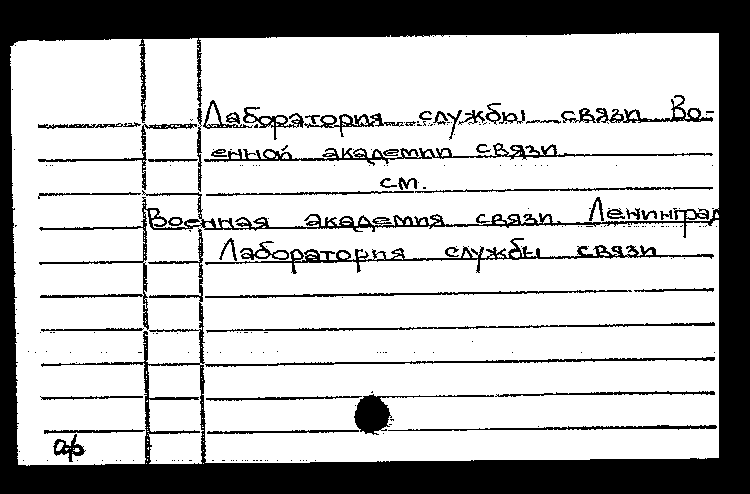 Лаборатория службы связи Во-
енной академии связи.
см.
Военная академия связи. Ленинград
Лаборатория службы связи
ар